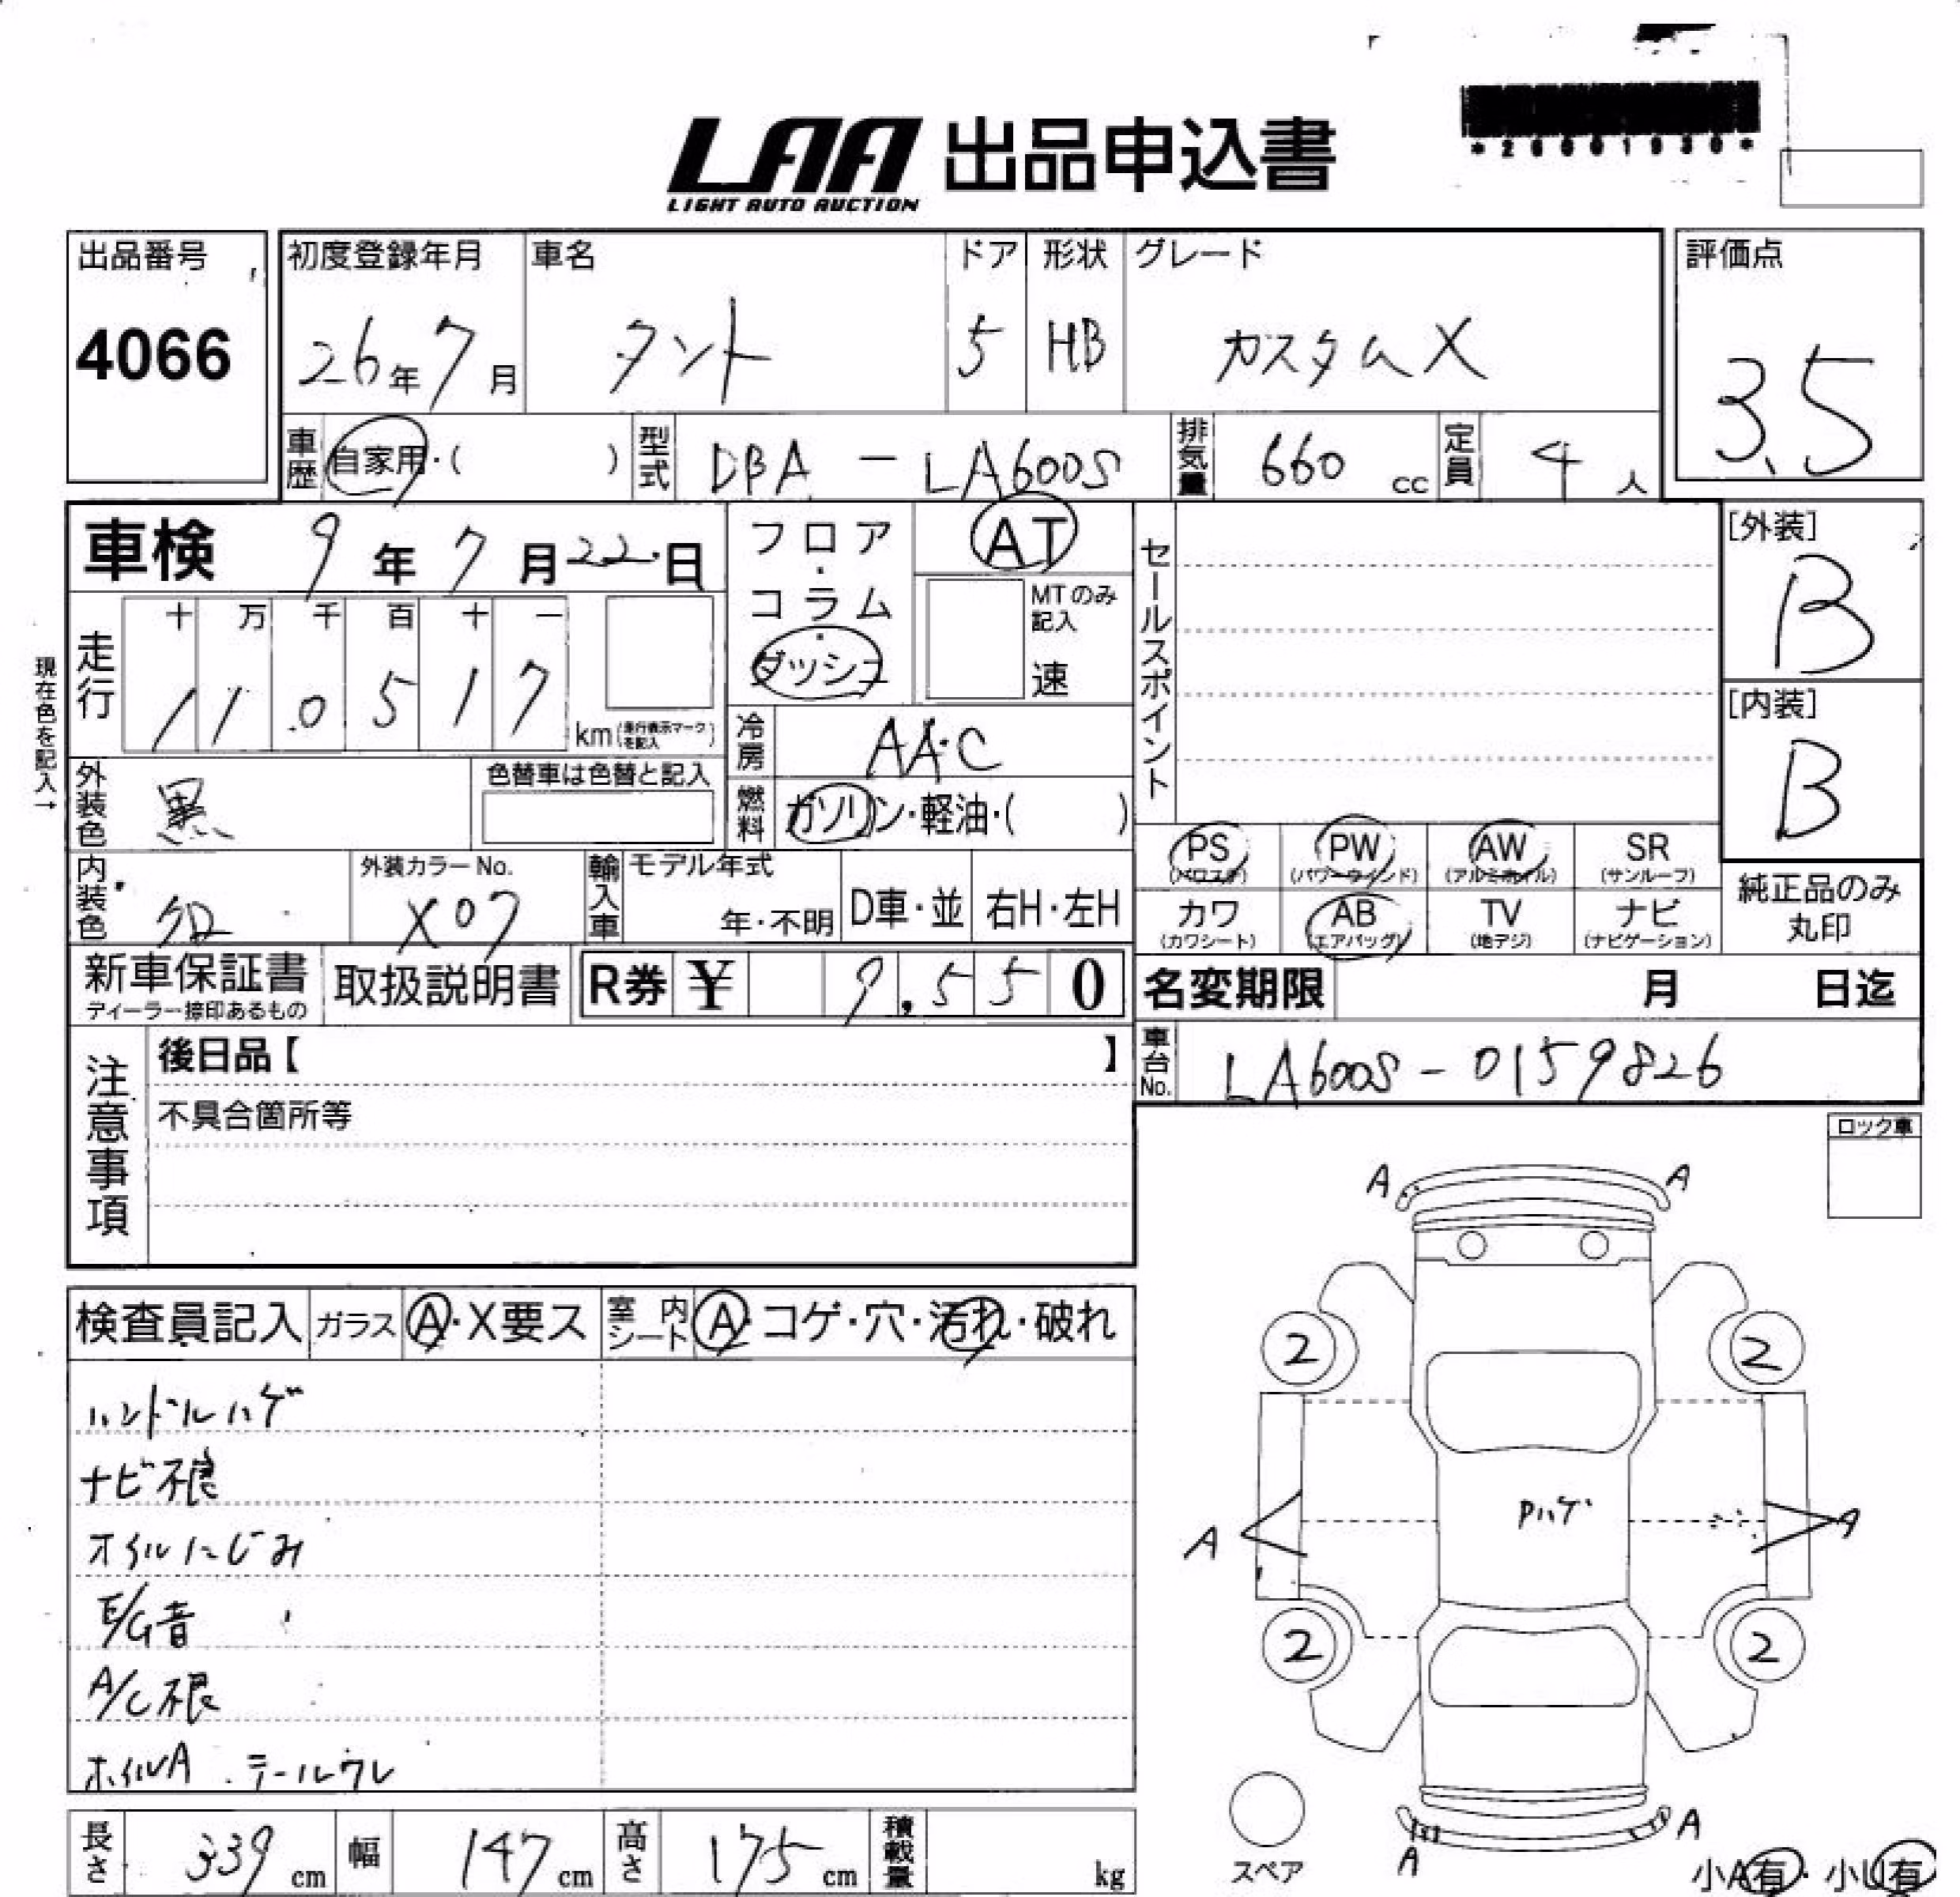 *26001930*
LAA 出品申込書
LIGHT AUTO AUCTION
出品番号 初度登録年月 車名 ドア 形状 グレード 評価点
4066 26年7月 タント 5 HB カスタムX 3.5
車歴 自家用・( ) 型式 DBA - LA600S 排気量 660 cc 定員 4人
車検 9年7月22日 フロア・コラム・ダッシュ AT セールスポイント [外装]
B
MTのみ記入
速
現在色を記入→
走行 十 万 千 百 十 一
1 1 0 5 1 7 km(走行表示マークを記入)
[内装]
B
冷房 AAC
外装色 黒 色替車は色替と記入
燃料 ガソリン・軽油・( )
PS (パワステ) PW (パワーウィンド) AW (アルミホイル) SR (サンルーフ)
内装色 外装カラーNo. X07 輸入車 モデル年式 年・不明 D車・並 右H・左H
カワ (カワシート) AB (エアバッグ) TV (地デジ) ナビ (ナビゲーション)
純正品のみ
丸印
新車保証書 ディーラー捺印あるもの 取扱説明書 R券 ¥ 9,550
名変期限 月 日迄
注意事項 後日品【 】
車台No. LA600S-0159826
不具合箇所等
ロック車
検査員記入 ガラス A・X要ス 室内シート A・コゲ・穴・汚れ・破れ
ハンドルハゲ
ナビ不良
オイルにじみ
E/G音
A/C不良
ホイルA テールワレ
A A
2 2
Pハゲ
A A
2 2
A A
スペア
小A有・小U有
長さ 339 cm 幅 147 cm 高さ 175 cm 積載量 kg